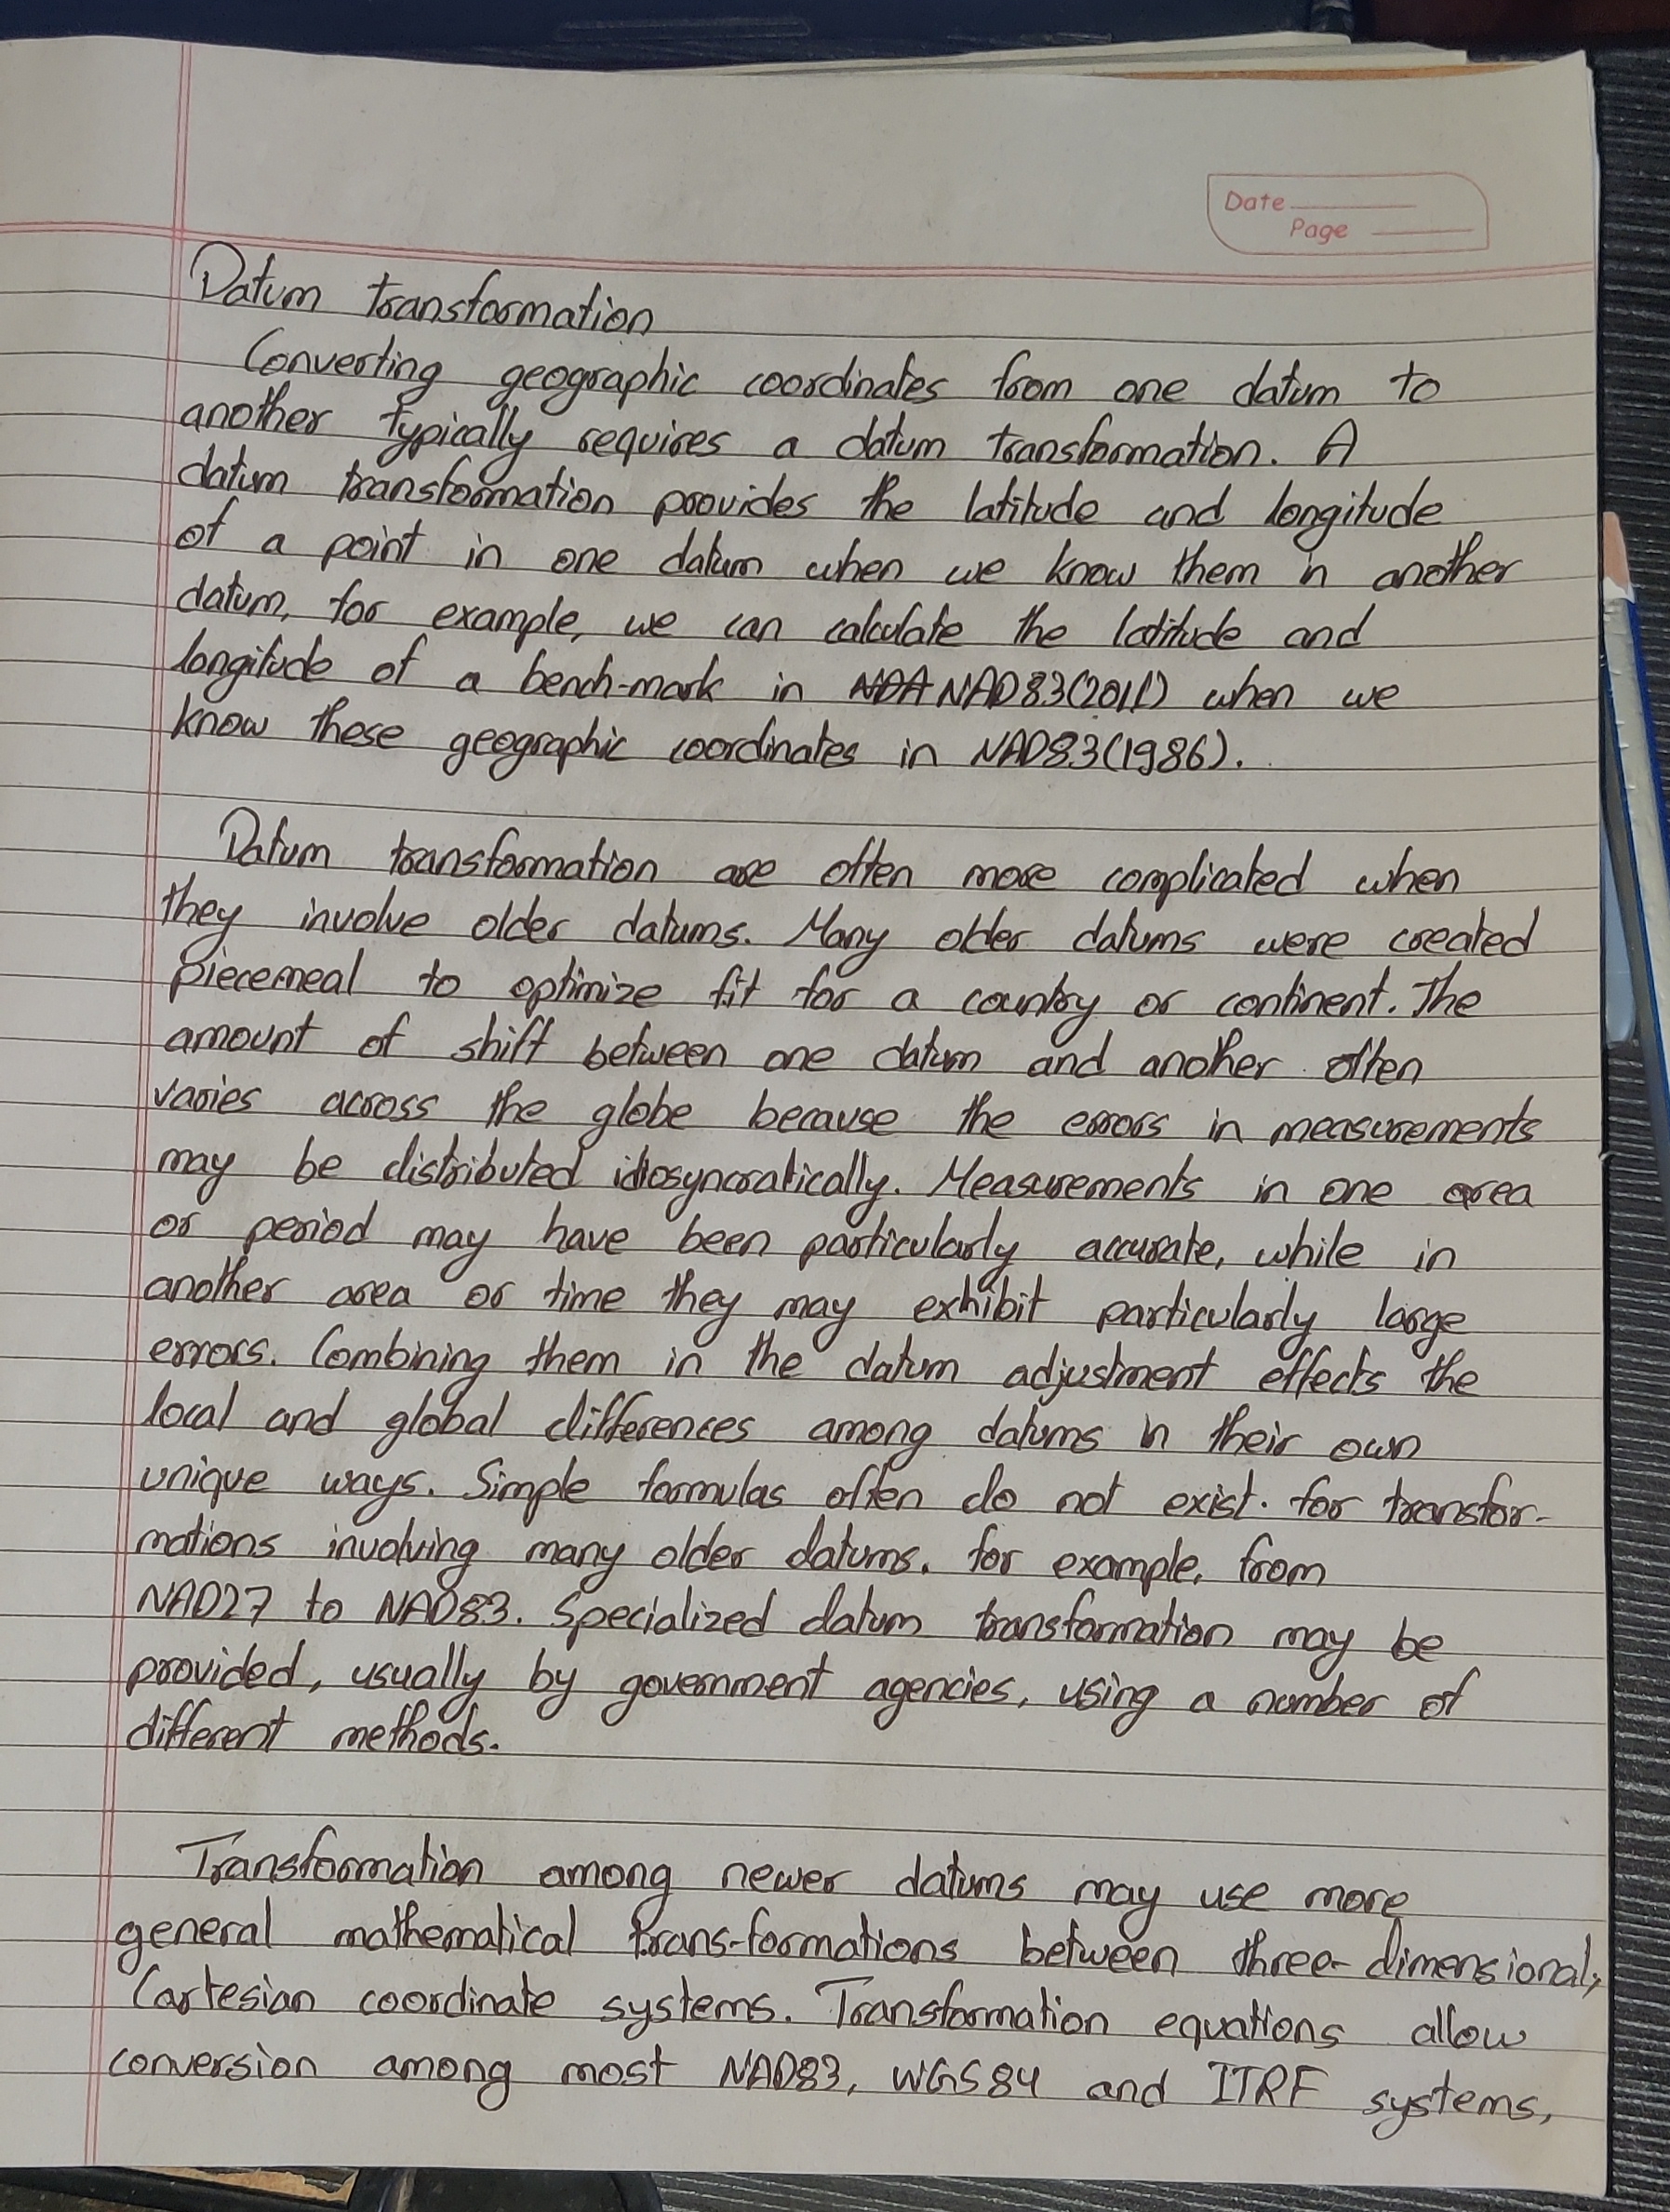 Date
Page
Datum transformation
Converting geographic coordinates from one datum to
another typically requires a datum transformation. A
datum transformation provides the latitude and longitude
of a point in one datum when we know them in another
datum, for example, we can calculate the latitude and
longitude of a bench-mark in NDA NAD83(2011) when we
know these geographic coordinates in NAD83(1986).
Datum transformation are often more complicated when
they involve older datums. Many older datums were created
piecemeal to optimize fit for a country or continent. The
amount of shift between one datum and another often
varies across the globe because the errors in measurements
may be distributed idiosyncratically. Measurements in one area
or period may have been particularly accurate, while in
another area or time they may exhibit particularly large
errors. Combining them in the datum adjustment effects the
local and global differences among datums in their own
unique ways. Simple formulas often do not exist. for transfor-
mations involving many older datums. for example, from
NAD27 to NAD83. Specialized datum transformation may be
provided, usually by government agencies, using a number of
different methods.
Transformation among newer datums may use more
general mathematical trans-formations between three-dimensional,
Cartesian coordinate systems. Transformation equations allow
conversion among most NAD83, WGS84 and ITRF systems,